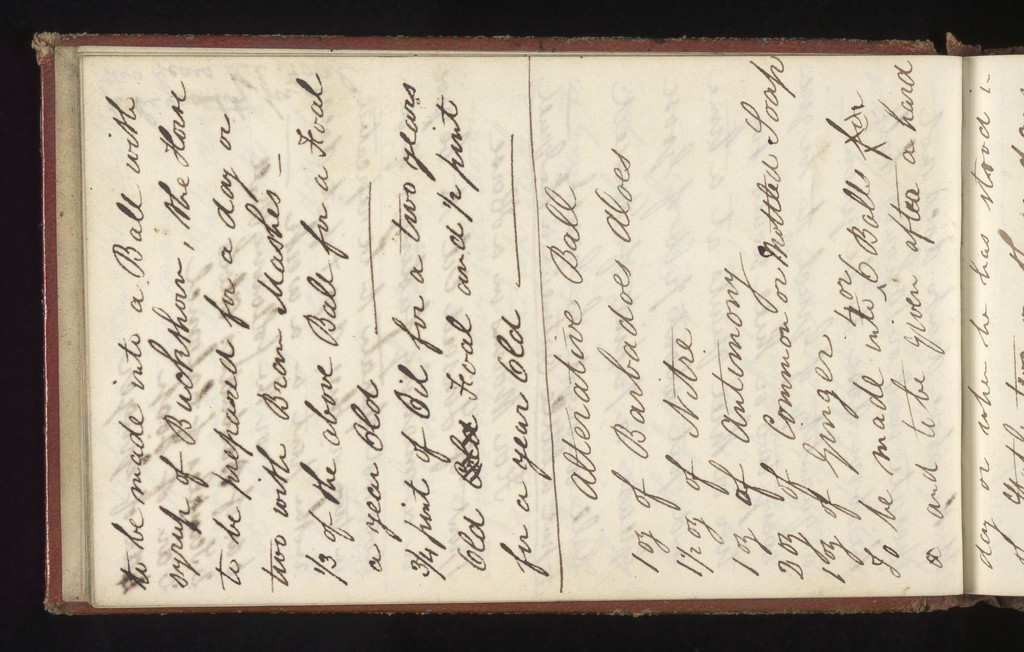 to be made into a Ball with
syrup of Buckthorn, the Horse
to be prepared for a day or
two with Bran Mashes —
1/3 of the above Ball for a Foal
a year Old
3/4 pint of Oil for a two years
Old Foal and 1/2 pint
for a year Old
Alterative Ball
1 oz of Barbadoes Aloes
1 1/2 oz of Nitre
1 oz of Antimony
2 oz of Common or Motted Soap
1 oz of Ginger
To be made into 5 or 6 Balls for
and to be given after a hard
day or when he has stood in